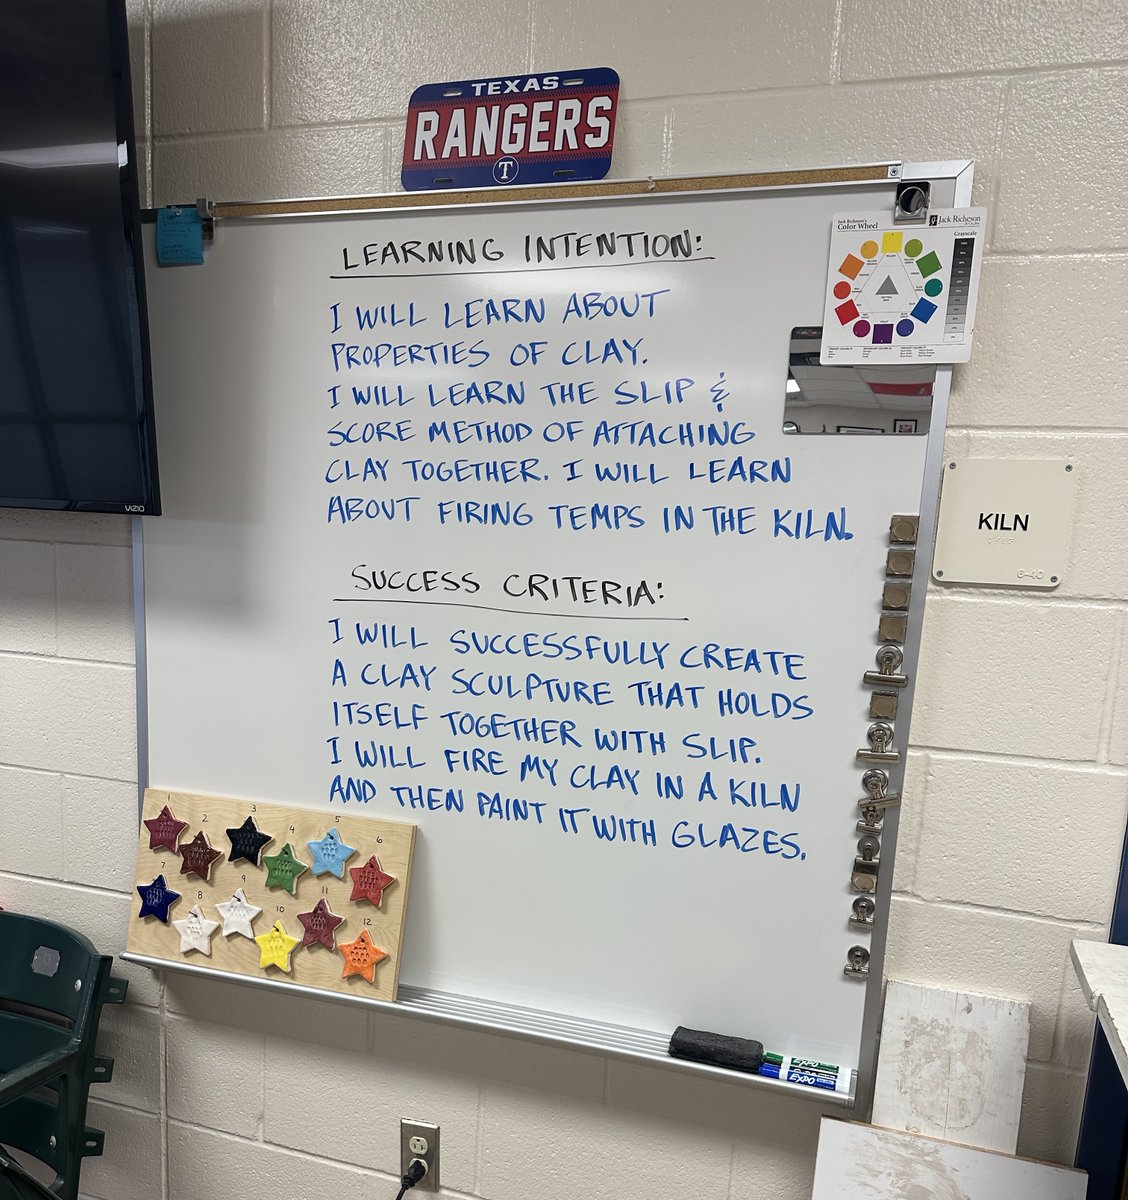 TEXAS
RANGERS
T
Jack Richeson's
Color Wheel
Jack Richeson
& Co., Inc.
Grayscale
YELLOW
LEARNING INTENTION:
I WILL LEARN ABOUT
PROPERTIES OF CLAY.
I WILL LEARN THE SLIP &
SCORE METHOD OF ATTACHING
CLAY TOGETHER. I WILL LEARN
ABOUT FIRING TEMPS IN THE KILN.
SUCCESS CRITERIA:
I WILL SUCCESSFULLY CREATE
A CLAY SCULPTURE THAT HOLDS
ITSELF TOGETHER WITH SLIP.
I WILL FIRE MY CLAY IN A KILN
AND THEN PAINT IT WITH GLAZES.
VIZIO
KILN
1 2 3 4 5 6
7 8 9 10 11 12
EXPO
EXPO
EXPO